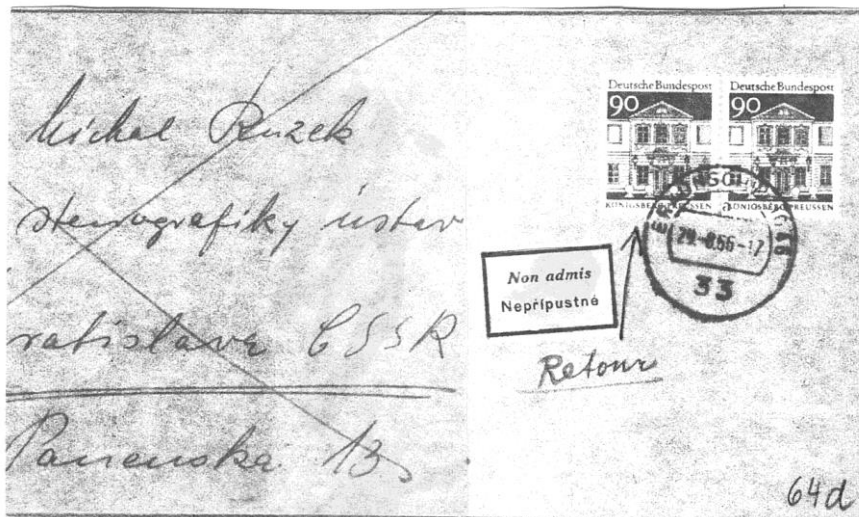 Michal Ruzek
stenografiky ústav
ratislava ČSSR
Panenska 13
Deutsche Bundespost
90
KÖNIGSBERG PREUSSEN
Deutsche Bundespost
90
KÖNIGSBERG PREUSSEN
a
29.-8.66-17
33
Non admis
Nepřípustné
Retour
64d